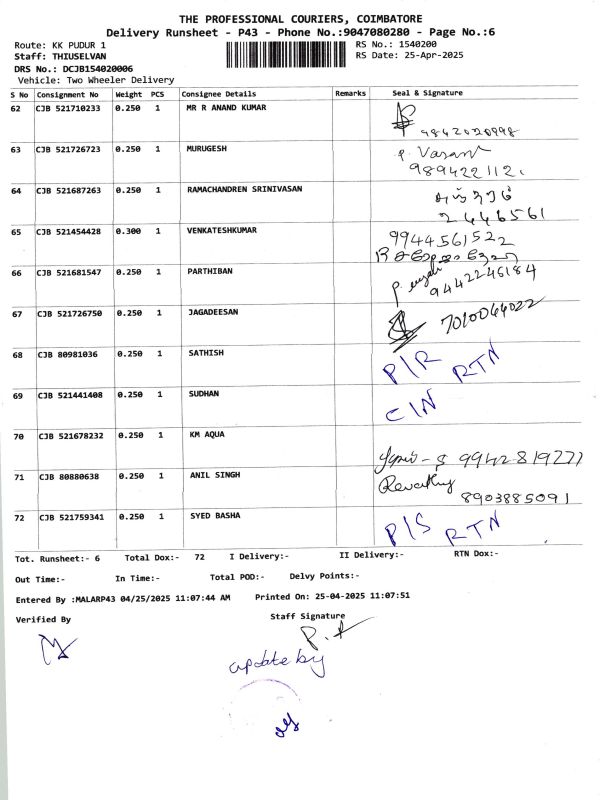 THE PROFESSIONAL COURIERS, COIMBATORE
Delivery Runsheet - P43 - Phone No.:9047080280 - Page No.:6
Route: KK PUDUR 1
RS No.: 1540200
Staff: THIUSELVAN
RS Date: 25-Apr-2025
DRS No.: DCJB154020006
Vehicle: Two Wheeler Delivery
S No Consignment No Weight PCS Consignee Details Remarks Seal & Signature
62 CJB 521710233 0.250 1 MR R ANAND KUMAR
9842020898
63 CJB 521726723 0.250 1 MURUGESH P. Vasant
989422112.
64 CJB 521687263 0.250 1 RAMACHANDREN SRINIVASAN
2446561
65 CJB 521454428 0.300 1 VENKATESHKUMAR 9944561522
66 CJB 521681547 0.250 1 PARTHIBAN
9442246184
67 CJB 521726750 0.250 1 JAGADEESAN 7010064022
68 CJB 80981036 0.250 1 SATHISH P/R RTN
69 CJB 521441408 0.250 1 SUDHAN C/N
70 CJB 521678232 0.250 1 KM AQUA
9942819277
71 CJB 80880638 0.250 1 ANIL SINGH Revathy
8903885091
72 CJB 521759341 0.250 1 SYED BASHA P/S RTN
Tot. Runsheet:- 6 Total Dox:- 72 I Delivery:- II Delivery:- RTN Dox:-
Out Time:- In Time:- Total POD:- Delvy Points:-
Entered By :MALARP43 04/25/2025 11:07:44 AM Printed On: 25-04-2025 11:07:51
Verified By Staff Signature
update by